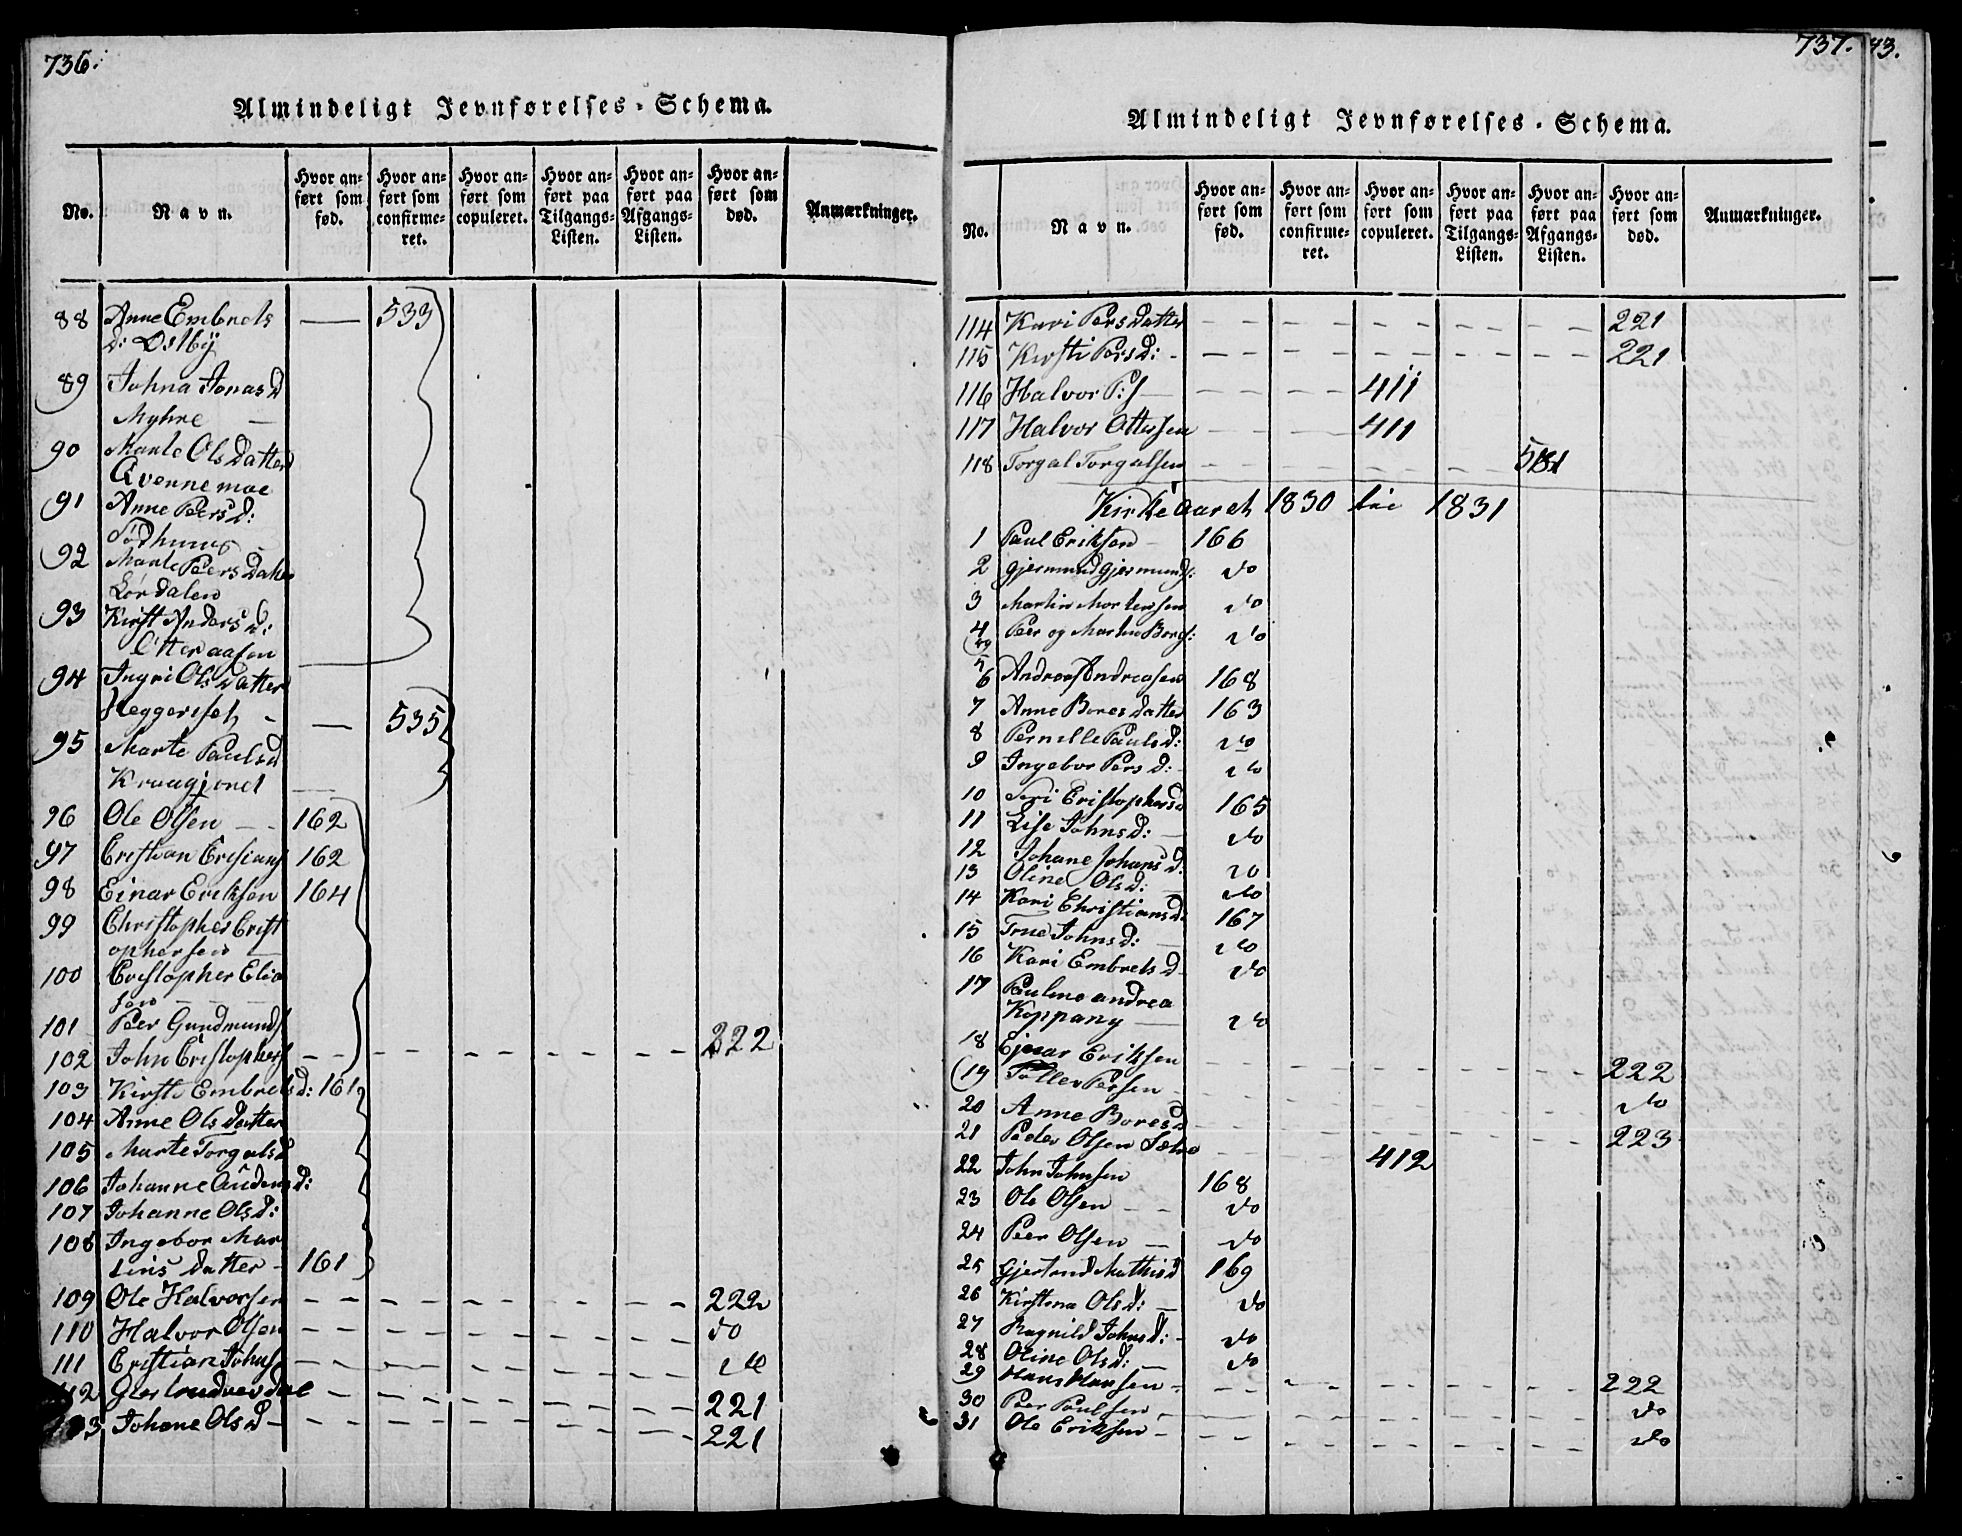 736.
Almindeligt Jevnførelses-Schema.
No.
Navn.
Hvor anført som fød.
Hvor anført som confirmeret.
Hvor anført som copuleret.
Hvor anført paa Tilgangs-Listen.
Hvor anført paa Afgangs-Listen.
Hvor anført som død.
Anmærkninger.
88 Anne Embrets — 533
d: Ostbÿ
89 Johna Jonas d
Myhre —
90 Marte Olsdatter
Qvennemoe
91 Anne Peersd:
92 Marte Peersdatter
Lørdalen
93 Kirsti Anders d:
Otteraasen
94 Ingri Olsdatter
Heggeriset - — 535
95 Marte Paulsd
Kraagjondet —
96 Ole Olsen — 162
97 Cristian Crisians 162
98 Einar Eriksen 164
99 Christopher Crist
ophersen —
100 Cristopher Elia
sen — —
101 Peer Gundmunds
102 John Cristophers — — — — — — 222
103 Kirsti Embretsd: 161
104 Anne Olsdatter
105 Marte Torgalsd
106 Johanne Audens d:
107 Johanne Olsd:
108 Ingebor Mar
tins datter - 161
109 Ole Halvorsen — — — — — 222
110 Halvor Olsen — — — — — do
111 Cristian Johns — — — — — do
112 — — — — — 221
113 Johane Olsd — — — — — 221
737.
43.
Almindeligt Jevnførelses-Schema.
No.
Navn.
Hvor anført som fød.
Hvor anført som confirmeret.
Hvor anført som copuleret.
Hvor anført paa Tilgangs-Listen.
Hvor anført paa Afgangs-Listen.
Hvor anført som død.
Anmærkninger.
114 Kari Persdatter — — — — — 221
115 Kirsti Persd: — — — — — 221
116 Halvor P:s — — — 411
117 Halvor Ottersen — — 411
118 Torgal Torgalsen — — — —
Kirkeaaret 1830 til 1831
1 Paul Eriksen — 166
2 Gjermund Gjermunds: do
3 Martin Mortensen do
4 og 5 Peer og Martin Bergs: do
6 Andreas Andreasen 168
7 Anne Boresdatter 163
8 Pernille Paulsd: do
9 Ingebor Persd: do
10 Seri Cristophersd 165
11 Lise Johnsd: — do
12 Johane Johans d: do
13 Oline Olsd: do
14 Kari Christiansd: 167
15 Trne Johnsd: — do
16 Kari Embretsd do
17 Pauline Andrea
Koppang — do
18 Ejnar Eriksen — — — — — 222
19 Toller Persen — — — — — do
20 Anne Boresd — — — — — 223
21 Peder Olsen — — 412
22 John Johnsen 168
23 Ole Olsen — — do
24 Peer Olsen — do
25 Gjertrud Mathisd 169
26 Kirstina Olsd: — do
27 Ragnild Johnsd: - do
28 Oline Olsd: — do
29 Hans Hansen - — — — — — 222
30 Peer Paulsen — — — — — do
31 Ole Eriksen — — — — — do